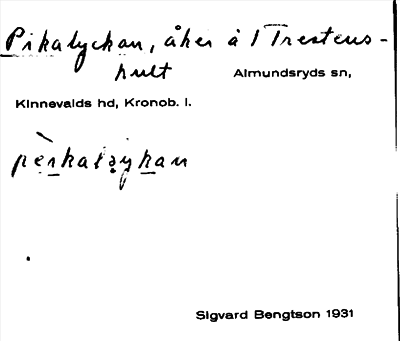 Pikalyckan, åker å 1 Trestens-
hult Almundsryds sn,
Kinnevalds hd, Kronob. l.
Sigvard Bengtson 1931